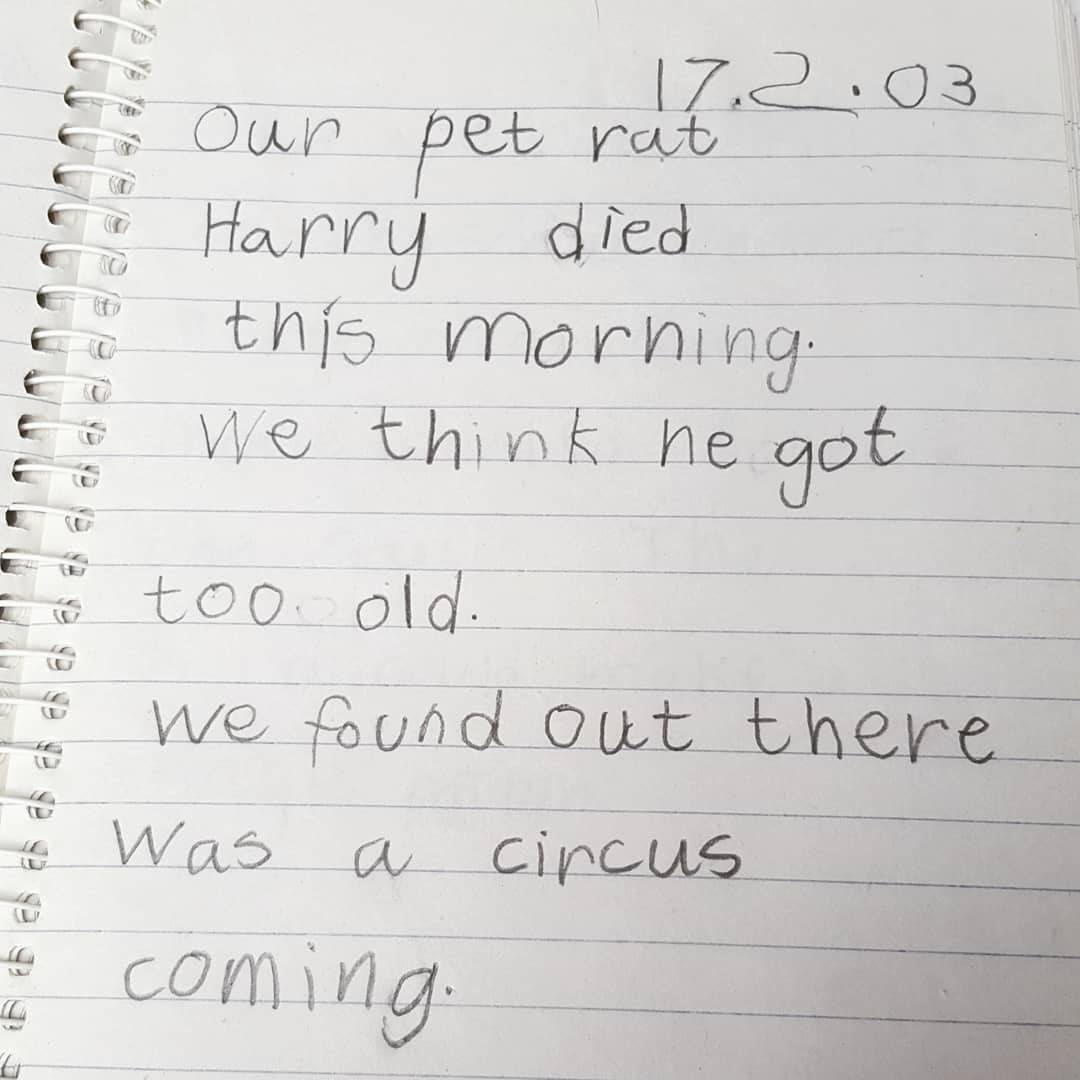 17.2.03
Our pet rat
Harry died
this morning.
We think he got
too old.
We found out there
was a circus
coming.